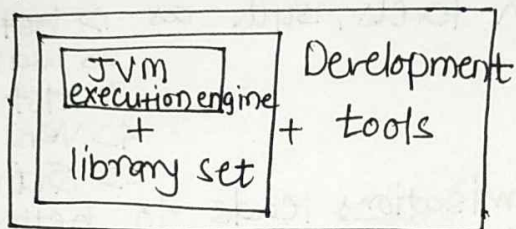 JVM
execution engine
+
library set
+
Development
tools